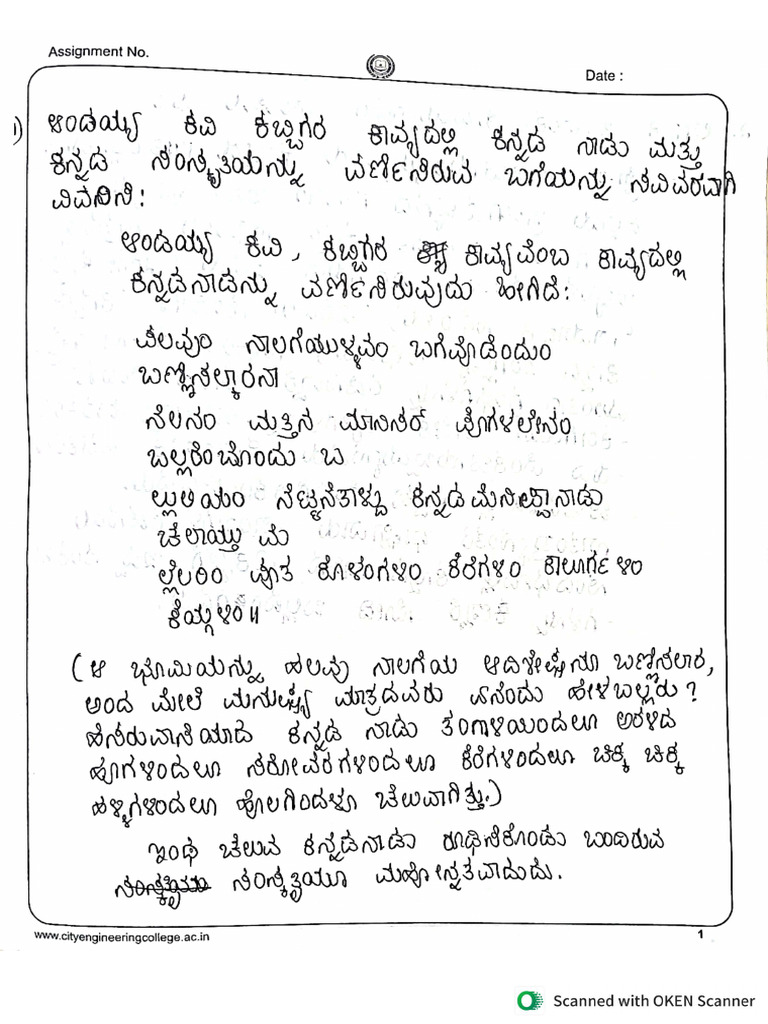 Assignment No.
Date :
1) ಆಂಡಯ್ಯ ಕವಿ ಕಬ್ಬಿಗರ ಕಾವ್ಯದಲ್ಲಿ ಕನ್ನಡ ನಾಡು ಮತ್ತು
ಕನ್ನಡ ಸಂಸ್ಕೃತಿಯನ್ನು ವರ್ಣಿಸಿರುವ ಬಗೆಯನ್ನು ಸವಿವರವಾಗಿ
ವಿವರಿಸಿ:
ಆಂಡಯ್ಯ ಕವಿ, ಕಬ್ಬಿಗರ ಕಾವ್ಯವೆಂಬ ಕಾವ್ಯದಲ್ಲಿ
ಕನ್ನಡನಾಡನ್ನು ವರ್ಣಿಸಿರುವುದು ಹೀಗಿದೆ:
ಪಲವುಂ ನಾಲಗೆಯುಳ್ಳವಂ ಬಗೆವೊಡೆಂದುಂ
ಬಣ್ಣಿಸಲ್ಕಾರನಾ
ನೆಲನಂ ಮತ್ತಿನ ಮಾನಿಸರ್ ಪೊಗಳಲೇನಂ
ಬಲ್ಲರೆಂಬೊಂದು ಬ
ಲ್ಲುಲಿಯಂ ನೆಟ್ಟನೆತಾಳ್ದು ಕನ್ನಡಮೆನಿಪ್ಪಾನಾಡು
ಚೆಲಾಯ್ತು ಮೆ
ಲ್ಲೆಲರಿಂ ಪೂತ ಕೊಳಂಗಳಿಂ ಕೆರೆಗಳಿಂ ಕಾಲೂರ್ಗಳಿಂ
ಕೆಯ್ಗಳಿಂ॥
(ಆ ಭೂಮಿಯನ್ನು ಹಲವು ನಾಲಗೆಯ ಆದಿಶೇಷನೂ ಬಣ್ಣಿಸಲಾರ,
ಅಂದ ಮೇಲೆ ಮನುಷ್ಯ ಮಾತ್ರದವರು ಏನೆಂದು ಹೇಳಬಲ್ಲರು?
ಹೆಸರುವಾಸಿಯಾದ ಕನ್ನಡ ನಾಡು ತಂಗಾಳಿಯಿಂದಲೂ ಅರಳಿದ
ಹೂಗಳಿಂದಲೂ ಸರೋವರಗಳಿಂದಲೂ ಕೆರೆಗಳಿಂದಲೂ ಚಿಕ್ಕ ಚಿಕ್ಕ
ಹಳ್ಳಿಗಳಿಂದಲೂ ಹೊಲಗಿಂದಳೂ ಚೆಲುವಾಗಿತ್ತು.)
ಇಂಥ ಚೆಲುವ ಕನ್ನಡನಾಡು ರೂಢಿಸಿಕೊಂಡು ಬಂದಿರುವ
ಸಂಸ್ಕೃತಿಯೂ ಮಹೋನ್ನತವಾದುದು.
www.cityengineeringcollege.ac.in
1
Scanned with OKEN Scanner